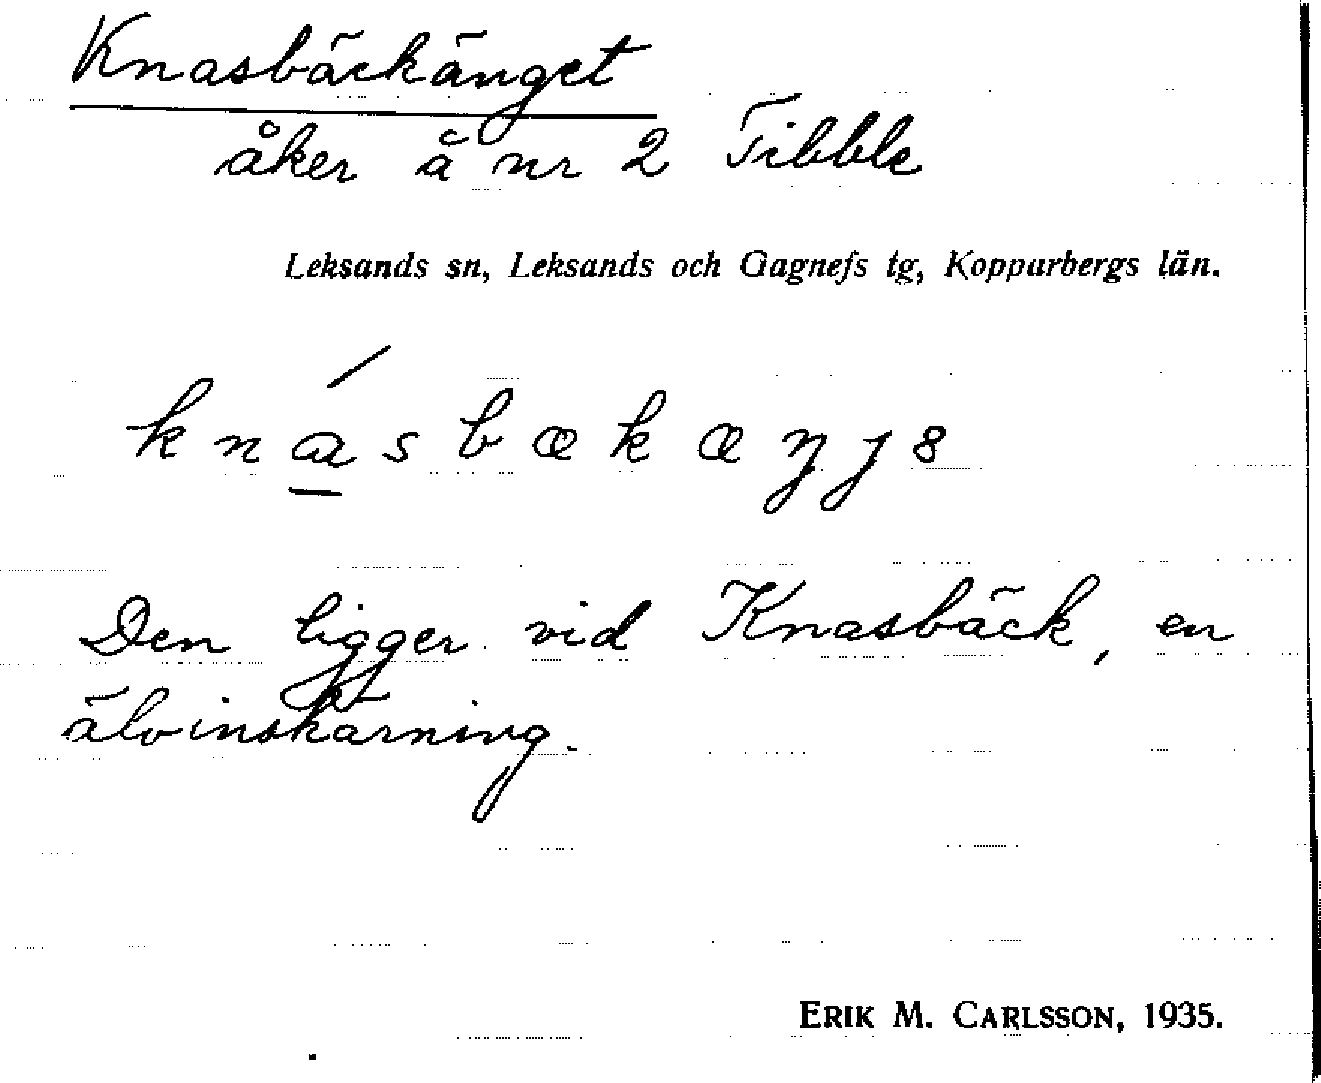 Knasbäckänget
åker å nr 2 Tibble
Leksands sn, Leksands och Gagnefs tg, Kopparbergs län.
kná̱sbækæŋɟ8
Den ligger vid Knasbäck, en
älvinskärning.
ERIK M. CARLSSON, 1935.